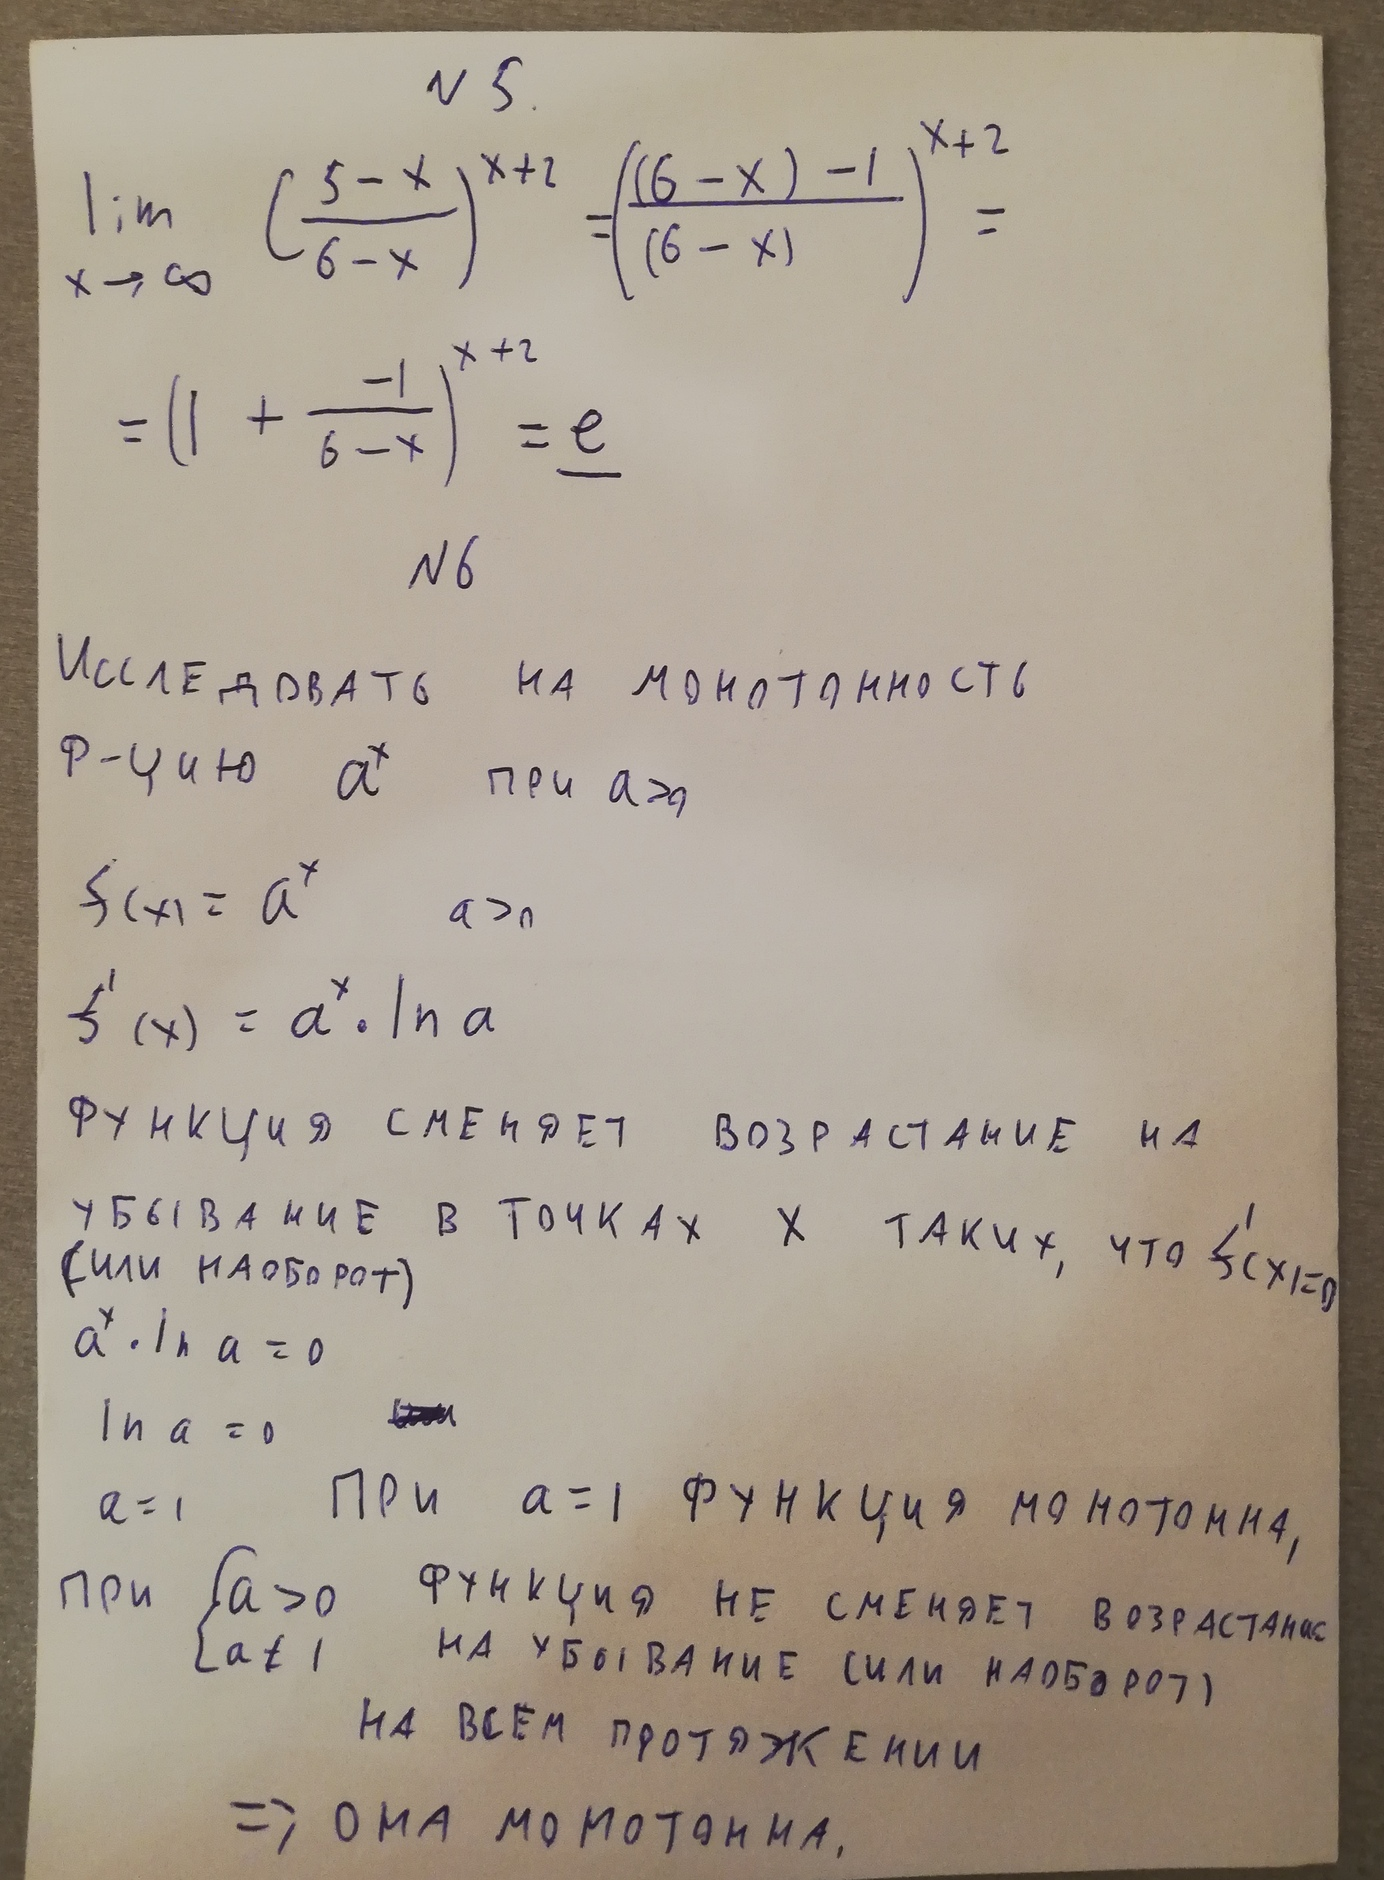 N 5.
lim x→∞ ((5-x)/(6-x))^(x+2) = (((6-x)-1)/(6-x))^(x+2) =
= (1 + (-1)/(6-x))^(x+2) = e
N6
ИССЛЕДОВАТЬ НА МОНОТОННОСТЬ
Ф-ЦИЮ a^x ПРИ a>0
f(x) = a^x a>0
f'(x) = a^x · ln a
ФУНКЦИЯ СМЕНЯЕТ ВОЗРАСТАНИЕ НА
УБЫВАНИЕ В ТОЧКАХ X ТАКИХ, ЧТО f'(x)=0
(ИЛИ НАОБОРОТ)
a^x · ln a = 0
ln a = 0
a=1 ПРИ a=1 ФУНКЦИЯ МОНОТОННА,
ПРИ {a>0 ФУНКЦИЯ НЕ СМЕНЯЕТ ВОЗРАСТАНИЕ
a≠1 НА УБЫВАНИЕ (ИЛИ НАОБОРОТ)
НА ВСЕМ ПРОТЯЖЕНИИ
=> ОНА МОНОТОННА.